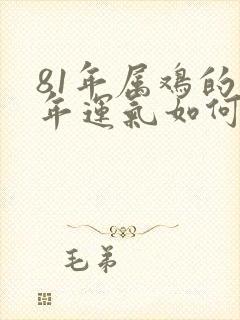 81年属鸡的
年運氣如何
毛弟